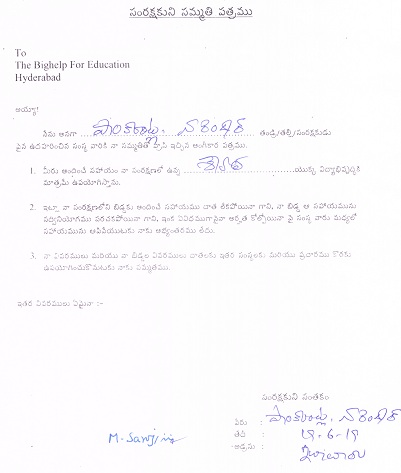 సంరక్షకుని సమ్మతి పత్రము
To
The Bighelp For Education
Hyderabad
అయ్యా!
నేను అనగా తండ్రి/తల్లి/సంరక్షకుడు
పైన ఉదహరించిన సంస్థ వారికి నా సమ్మతితో వ్రాసి ఇచ్చిన అంగీకార పత్రము.
1. మీరు అందించే సహాయం నా సంరక్షణలో ఉన్న యొక్క విద్యాభివృద్ధికి
మాత్రమే ఉపయోగిస్తాను.
2. ఇట్లా నా సంరక్షణలోని బిడ్డకు అందించే సహాయము చాత లేకపోయినా గాని, నా బిడ్డ ఆ సహాయమును
సద్వినియోగము పరచకపోయినా గాని, ఇంక ఏవిధముగానైనా అర్హత కోల్పోయినా పై సంస్థ వారు మధ్యలో
సహాయమును ఆపివేయుటకు నాకు అభ్యంతరము లేదు.
3. నా వివరములు మరియు నా బిడ్డల వివరములు దాతలకు ఇతర సంస్థలకు మరియు ప్రచారము కొరకు
ఉపయోగించుకొనుటకు నాకు సమ్మతము.
ఇతర వివరములు ఏమైనా :-
సంరక్షకుని సంతకం
పేరు :
తేది : 19-6-19
అడ్రసు :